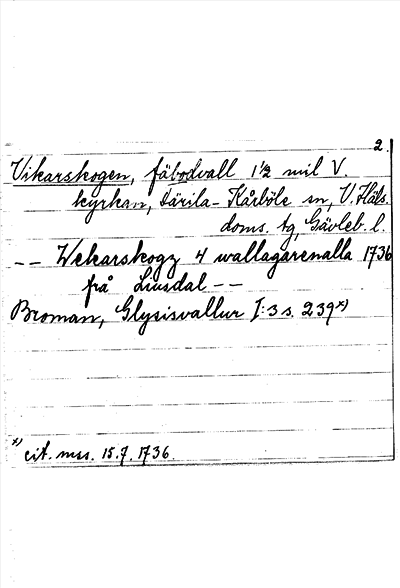 2.
Vikarskogen, fäbodvall 1 1/2 mil V.
kyrkan, Färila-Kårböle sn, V. Häls.
doms. tg, Gävleb. l.
-- Wekarskogz 4 wallagarenalla 1736
frå Liusdal --
Broman, Glysisvallur I:3 s. 239 x)
x) cit. mss. 15.7.1736.